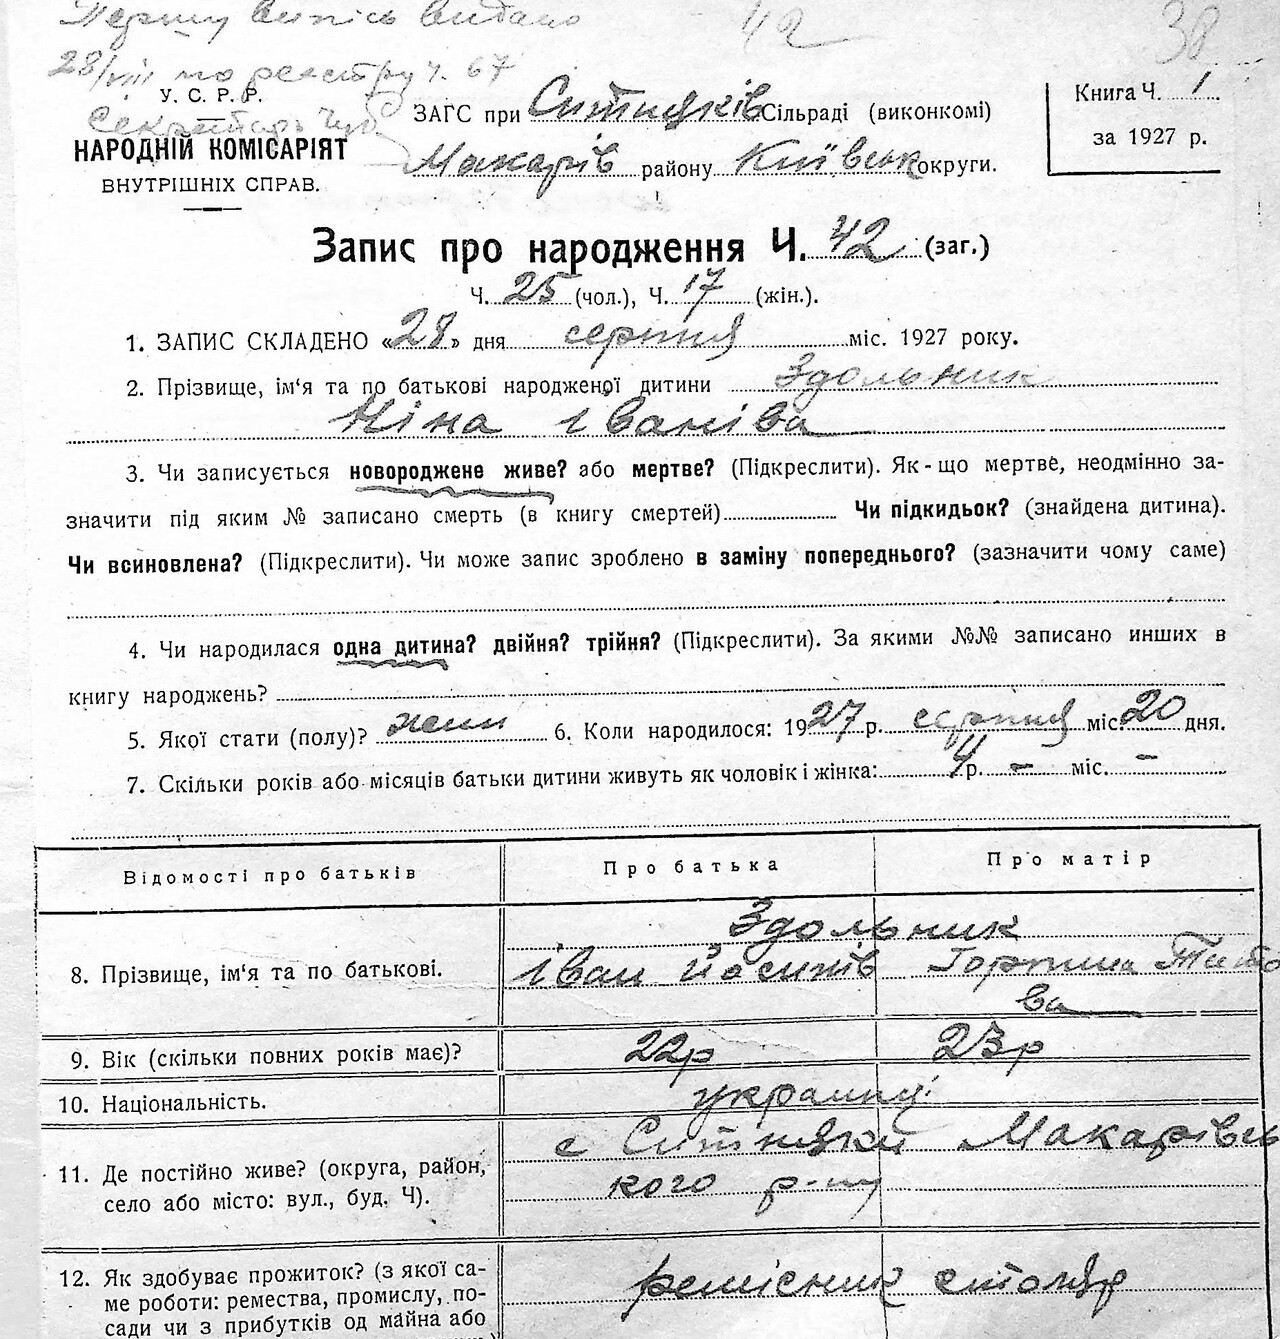 Першу випись видано
42
38
28/VIII по реєстру ч. 67
Секретарь
У. С. Р. Р.
НАРОДНІЙ КОМІСАРІЯТ
ВНУТРІШНІХ СПРАВ.
ЗАГС при Ситняків Сільраді (виконкомі)
Макарів району Київськ округи.
Книга Ч. 1.
за 1927 р.
Запис про народження Ч. 42 (заг.)
Ч. 25 (чол.), Ч. 17 (жін.).
1. ЗАПИС СКЛАДЕНО «28» дня серпня міс. 1927 року.
2. Прізвище, ім‘я та по батькові народженої дитини Здольник
Ніна Іванівa
3. Чи записується новороджене живе? або мертве? (Підкреслити). Як-що мертве, неодмінно за-
значити під яким № записано смерть (в книгу смертей) Чи підкидьок? (знайдена дитина).
Чи всиновлена? (Підкреслити). Чи може запис зроблено в заміну попереднього? (зазначити чому саме)
4. Чи народилася одна дитина? двійня? трійня? (Підкреслити). За якими №№ записано инших в
книгу народжень?
5. Якої стати (полу)? жін 6. Коли народилося: 1927 р. серпня міс. 20 дня.
7. Скільки років або місяців батьки дитини живуть як чоловік і жінка: 4 р. – міс. –
Відомості про батьків
Про батька
Про матір
8. Прізвище, ім‘я та по батькові.
Здольник
Іван Йосипів Горпина Тито
ва
9. Вік (скільки повних років має)?
22р 23р
10. Національність.
українці
11. Де постійно живе? (округа, район,
село або місто: вул., буд. Ч).
с Ситняки Макарівсь
кого р-ну
12. Як здобуває прожиток? (з якої са-
ме роботи: ремества, промислу, по-
сади чи з прибутків од майна або
ремісник столяр